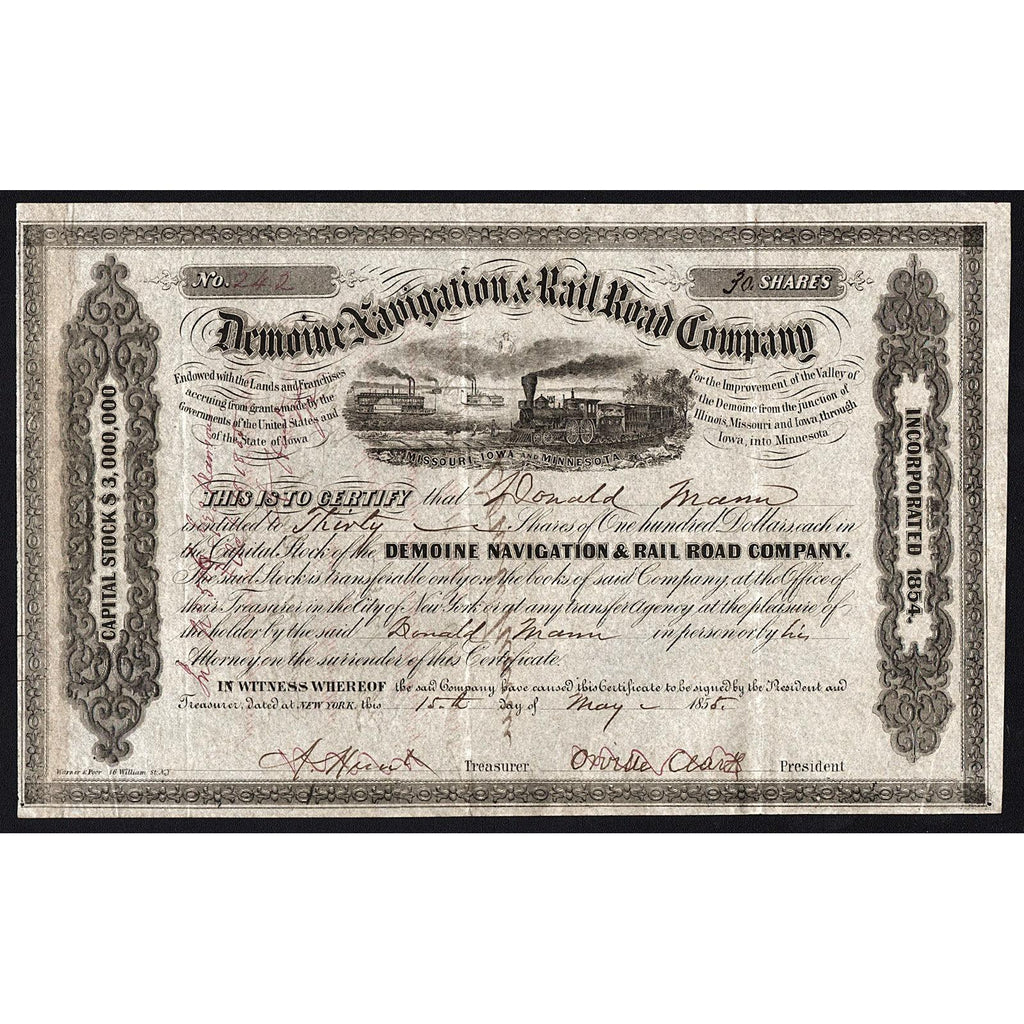 No. 242
30. SHARES
Demoine Navigation & Rail Road Company
Endowed with the Lands and Franchises
accruing from grants made by the
Governments of the United States and
of the State of Iowa
For the Improvement of the Valley of
the Demoine from the junction of
Illinois, Missouri and Iowa, through
Iowa, into Minnesota
MISSOURI, IOWA AND MINNESOTA
CAPITAL STOCK $ 3,000,000
INCORPORATED 1854.
THIS IS TO CERTIFY that Donald Mann
is entitled to Thirty Shares of One hundred Dollars each in
the Capital Stock of the DEMOINE NAVIGATION & RAIL ROAD COMPANY.
The said Stock is transferable only on the books of said Company, at the Office of
their Treasurer in the City of New York or at any transfer Agency at the pleasure of
the holder by the said Donald Mann in person or by his
Attorney, on the surrender of this Certificate.
IN WITNESS WHEREOF the said Company have caused this Certificate to be signed by the President and
Treasurer, Dated at NEW YORK, this 15th day of May 1855.
Treasurer Orville Clark President
Korner & Peer 16 William St. N.Y.